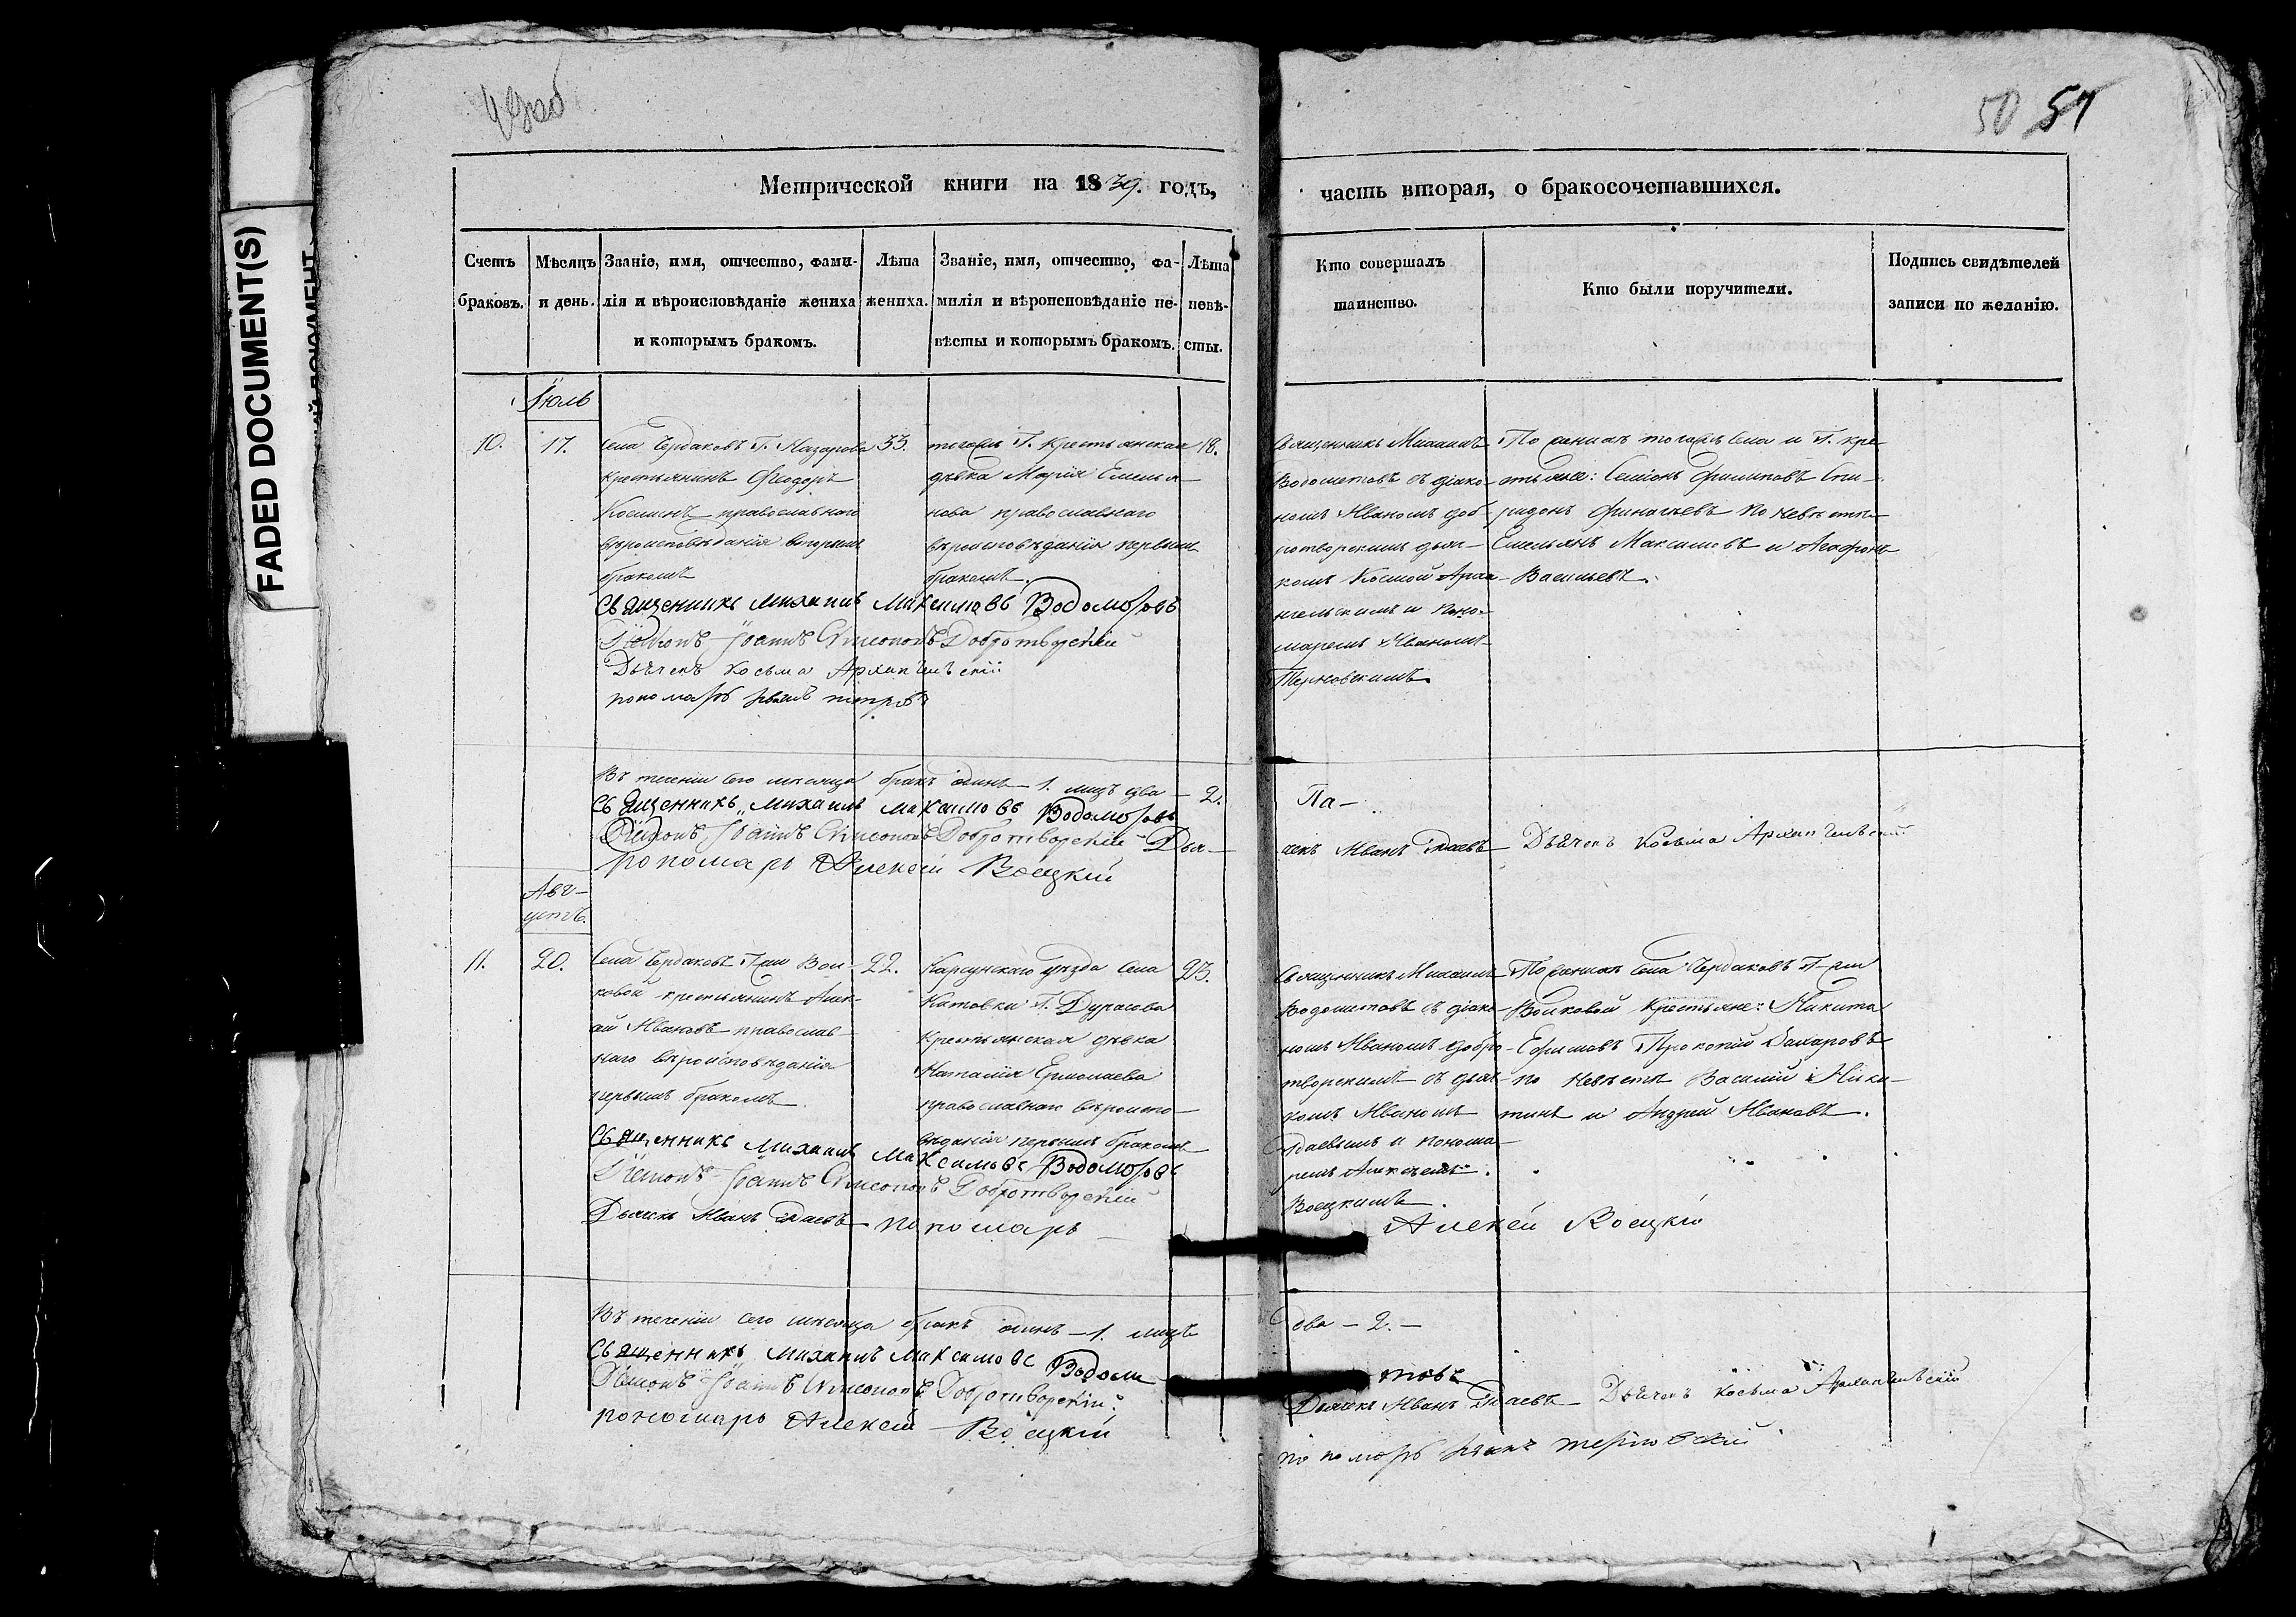 FADED DOCUMENT(S)
50 51
Метрической книги на 1839. годъ,
часть вторая, о бракосочетавшихся.
Счетъ
браковъ.
Мѣсяцъ
и день.
Званіе, имя, отчество, фами-
лія и вѣроисповѣданіе жениха
и которымъ бракомъ.
Лѣта
жениха.
Званіе, имя, отчество, фа-
милія и вѣроисповѣданіе не-
вѣсты и которымъ бракомъ.
Лѣта
невѣ-
сты.
Кто совершалъ
таинство.
Кто были поручители.
Подпись свидѣтелей
записи по желанію.
Іюль
10.
17.
Села Чердаковъ Г. Назарова
крестьянинъ Ѳеодоръ
Косминъ православнаго
вѣроисповѣданія вторымъ
бракомъ
33.
тогожъ Г. крестьянская
дѣвка Марія Емелья-
нова православнаго
вѣроисповѣданія первымъ
бракомъ.
18.
Священникъ Михаилъ
Водометовъ съ діако-
номъ Иваномъ Доб-
ротворскимъ дьяч-
комъ Космой Арха-
нгельскимъ и поно-
маремъ Иваномъ
Терновскимъ
По женихѣ тогожъ села и Г. кре-
стьяне: Семіонъ Филиповъ Спи-
ридонъ по невѣстѣ
Емельянъ Максимовъ и Агафонъ
Васильевъ.
Священникъ Михаилъ Максимовъ Водометовъ
Діаконъ Іоаннъ Симеоновъ Добротворскій
Дьячекъ Косьма Архангельскій
пономарь Иванъ
Въ теченіи сего мѣсяца бракъ одинъ – 1. лицъ два – 2.
Священникъ Михаилъ Максимовъ Водометовъ
Діаконъ Іоаннъ Симеоновъ Добротворскій Дья-
чекъ Иванъ Дьячекъ Косьма Архангельскій
пономарь Алексей Воецкій
Авг-
устъ.
11.
20.
Села Чердаковъ Г-жи Вол-
ковой крестьянинъ Алек-
ѣй Ивановъ православ-
наго вѣроисповѣданія
первымъ бракомъ
22.
Карсунскаго уѣзда села
Катовки Г. Дурасова
крестьянская дѣвка
Наталія Ермолаева
православнаго вѣроиспо-
вѣданія первымъ бракомъ
23.
Священникъ Михаилъ
Водометовъ съ діако-
номъ Иваномъ Добро-
творскимъ съ дьяч-
комъ Иваномъ
и понома-
ремъ Алексѣемъ
Воецкимъ.
По женихѣ села Чердаковъ Г-жи
Волковой крестьяне: Никита
Ефимовъ Прокопій Захаровъ
по невѣстѣ Василій Ники-
тинъ и Андрей Ивановъ.
Священникъ Михаилъ Максимовъ Водометовъ
Діаконъ Іоаннъ Симеоновъ Добротворскій
Дьячекъ Иванъ пономарь
Алексей Воецкій
Въ теченіи сего мѣсяца бракъ одинъ – 1. лицъ
два – 2. –
Священникъ Михаилъ Максимовъ Водоме-
товъ
Діаконъ Іоаннъ Симеоновъ Добротворскій
Дьячекъ Иванъ Дьячекъ Косьма Архангельскій
пономарь Алексей Воецкій
пономарь Иванъ Терновскій